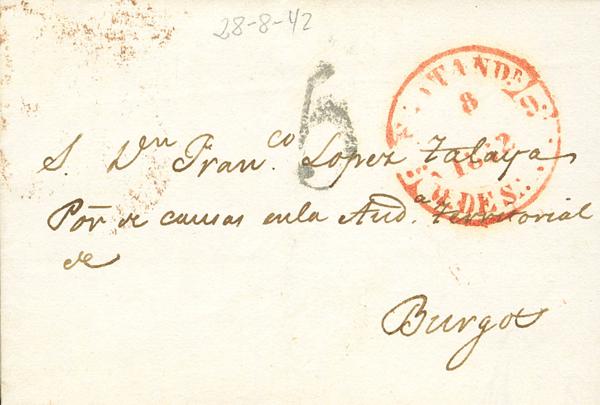 28-8-42
SANTANDR
8
1842
S. Dn Franco Lopez Talaya
Por de causas en la Auda territorial
de
Burgos